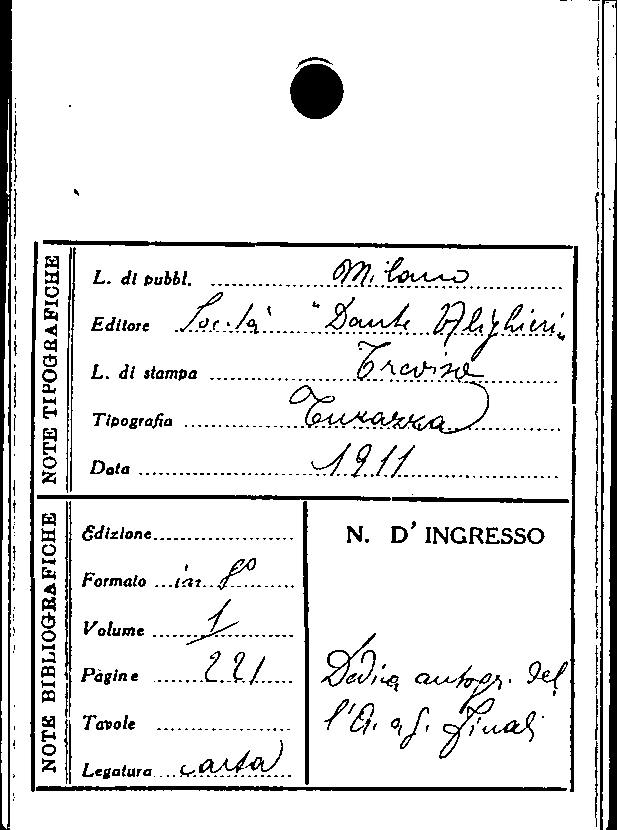 NOTE TIPOGRAFICHE
L. di pubbl. Milano
Editore Soc.tà "Dante Alighieri"
L. di stampa Treviso
Tipografia Turazza
Data 1911
NOTE BIBLIOGRAFICHE
Edizione
Formato in 8º
Volume 1
Pàgine 221
Tavole
Legatura carta
N. D'INGRESSO
Dedica autogr. del
l'A. a G. Finali